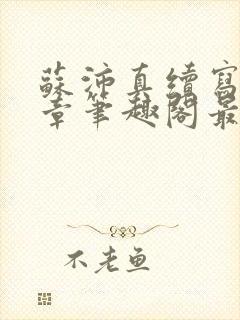 蘇沛真續寫
章筆趣閣最
不老魚